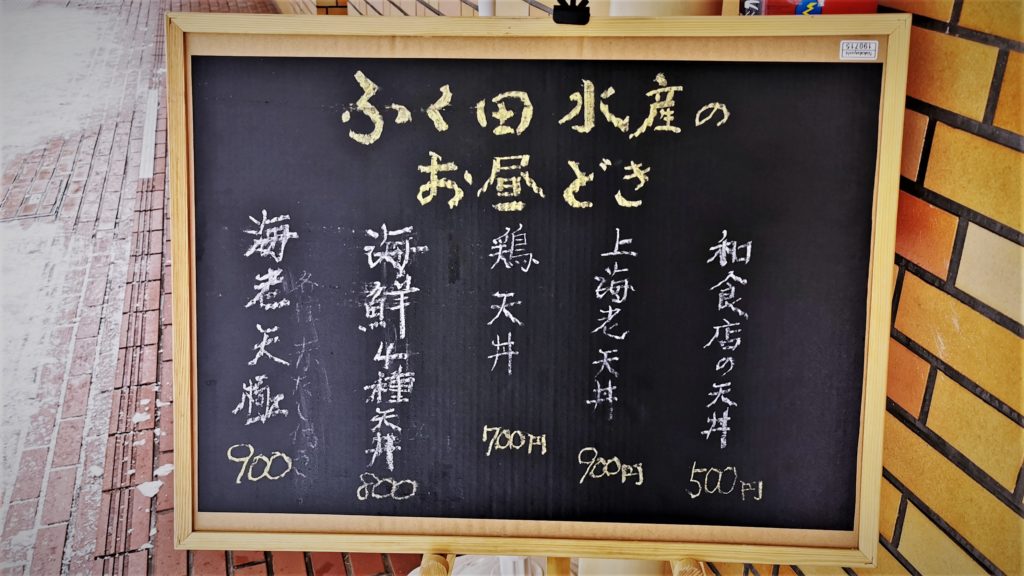 ふく田水産の
お昼どき
和食店の天丼
500円
上海老天丼
900円
鶏天丼
700円
海鮮4種天丼
800
海老天極
900
190715